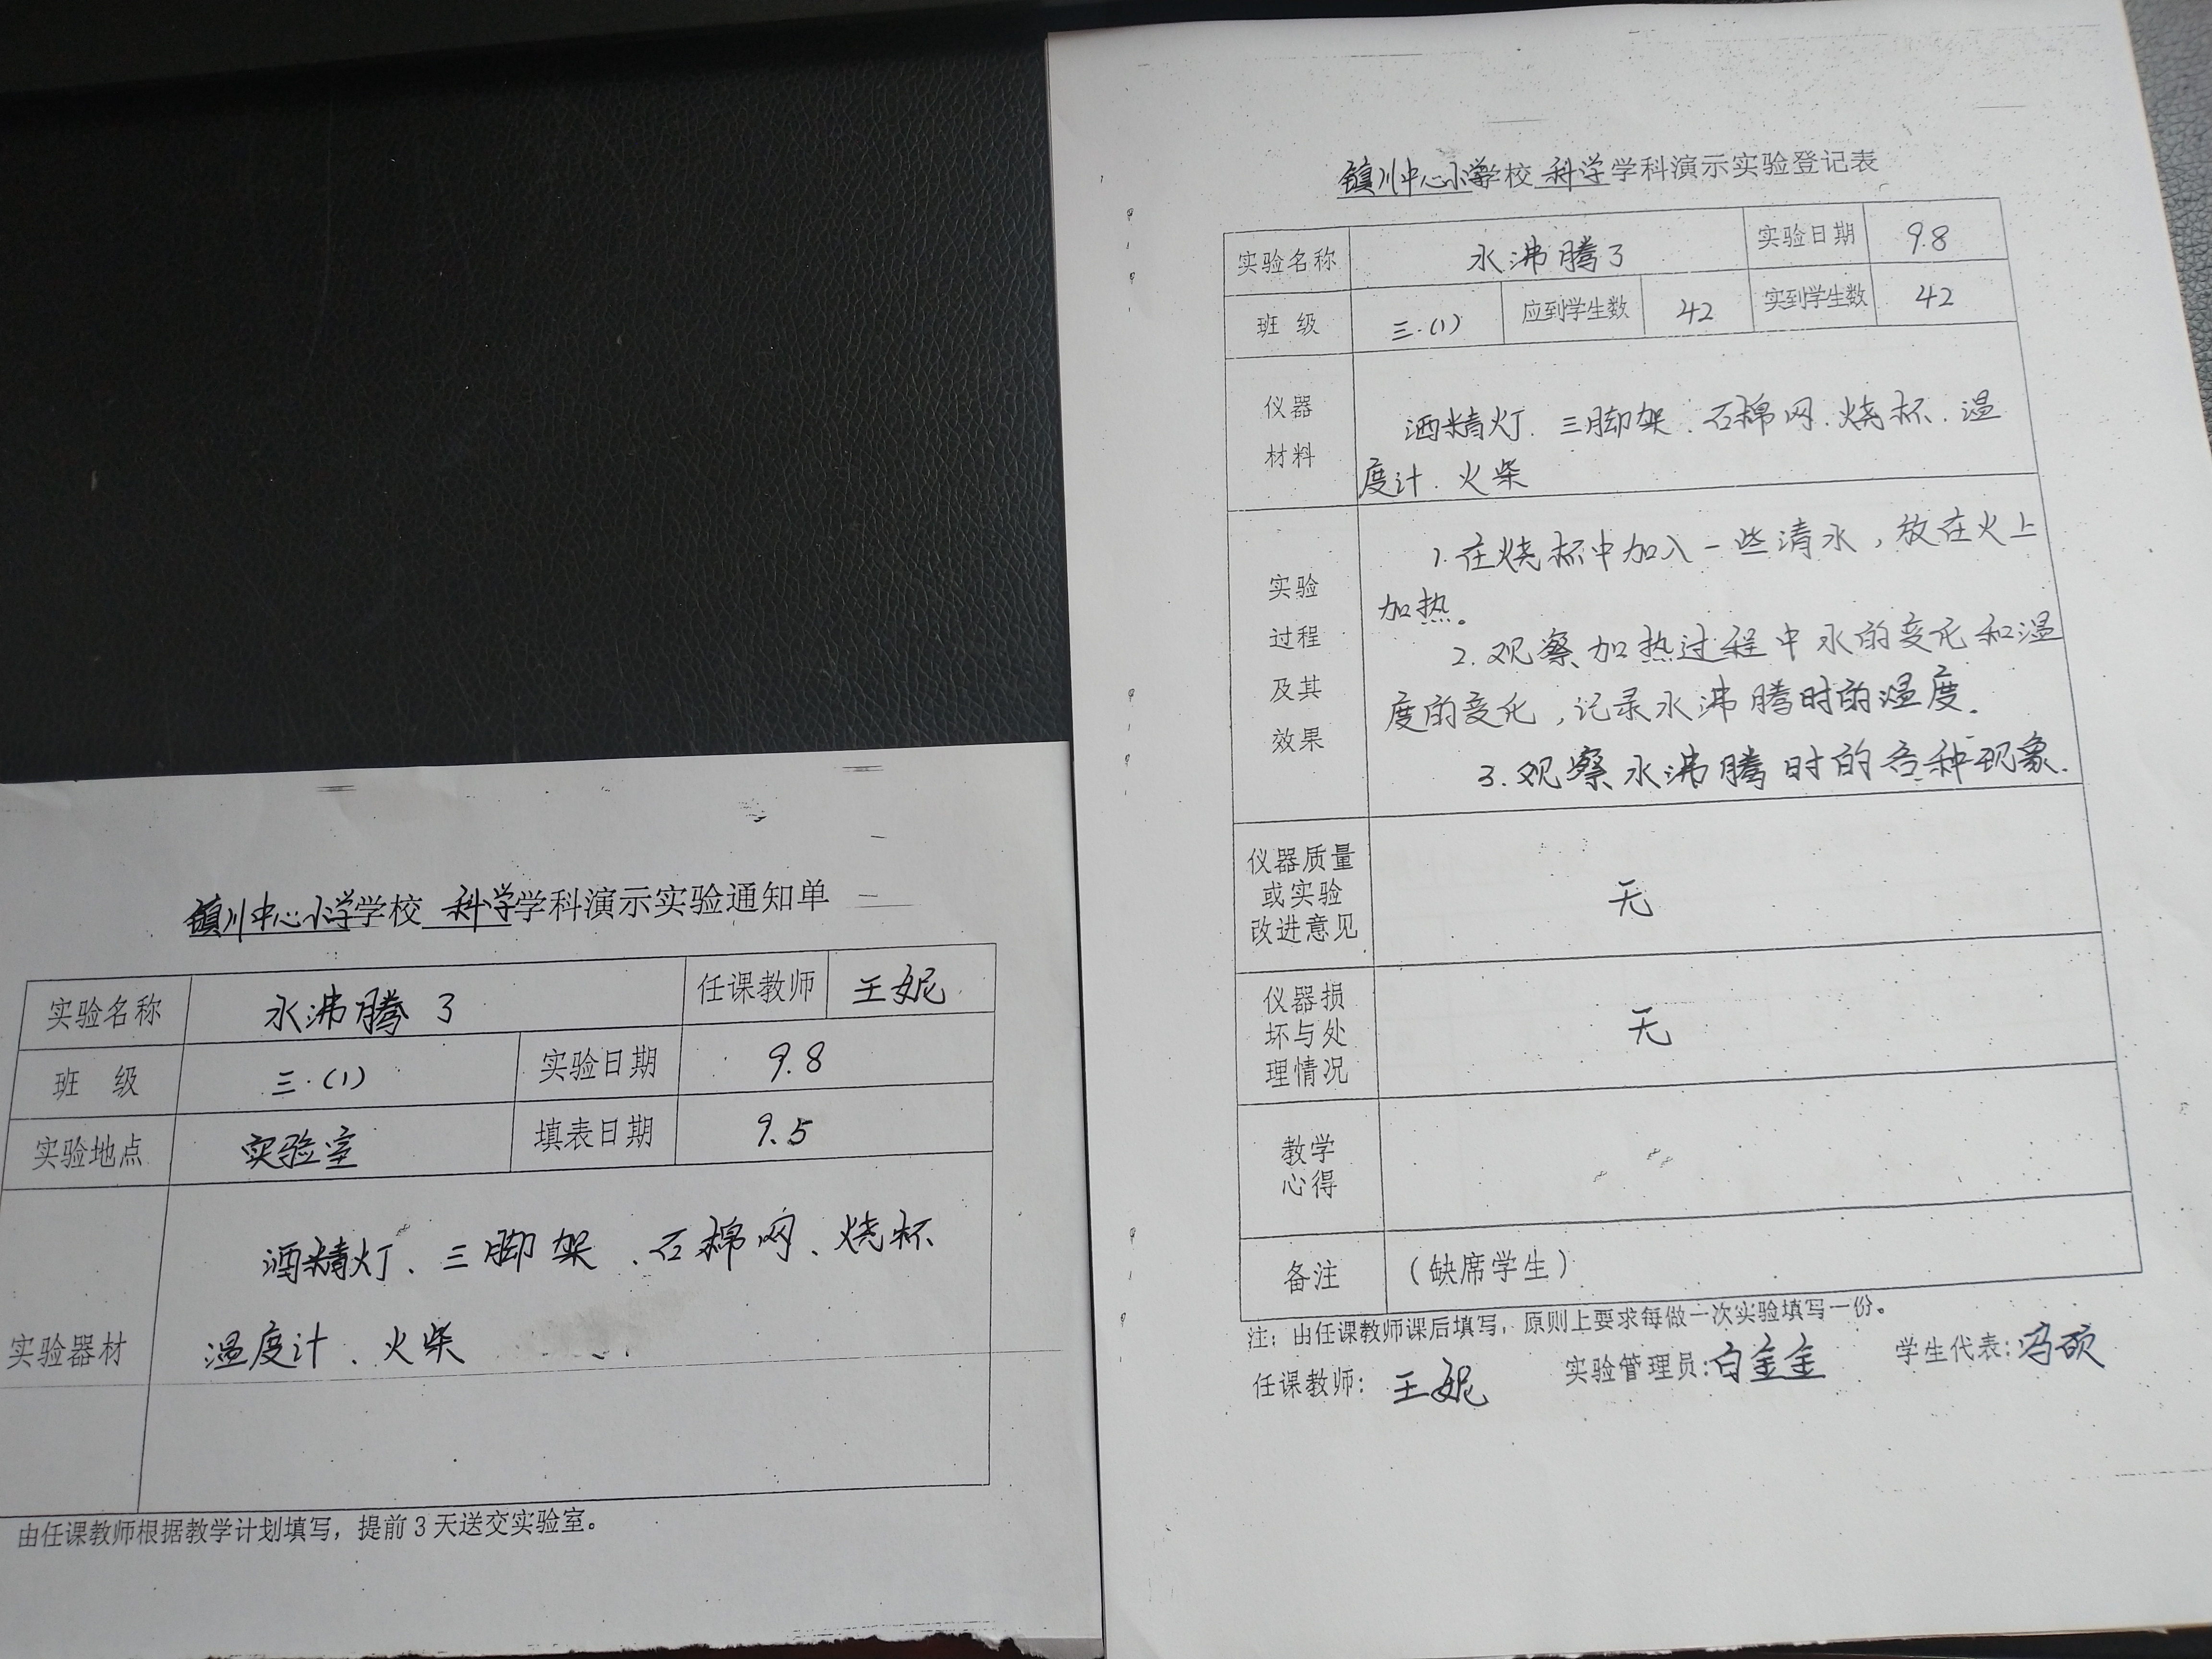 镇川中心小学学校 科学学科演示实验通知单
实验名称 水沸腾了 任课教师 王妮
班 级 三.(1) 实验日期 9.8
实验地点 实验室 填表日期 9.5
实验器材
酒精灯、三脚架、石棉网、烧杯
温度计、火柴
由任课教师根据教学计划填写，提前3天送交实验室。
镇川中心小学学校 科学学科演示实验登记表
实验名称 水沸腾了 实验日期 9.8
班 级 三.(1) 应到学生数 42 实到学生数 42
仪器
材料
酒精灯.三脚架.石棉网.烧杯.温
度计.火柴
实验
过程
及其
效果
1.在烧杯中加入一些清水，放在火上
加热。
2.观察加热过程中水的变化和温
度的变化，记录水沸腾时的温度.
3.观察水沸腾时的各种现象.
仪器质量
或实验
改进意见
无
仪器损
坏与处
理情况
无
教学
心得
备注 （缺席学生）
注：由任课教师课后填写，原则上要求每做一次实验填写一份。
任课教师：王妮 实验管理员:白金金 学生代表:冯硕